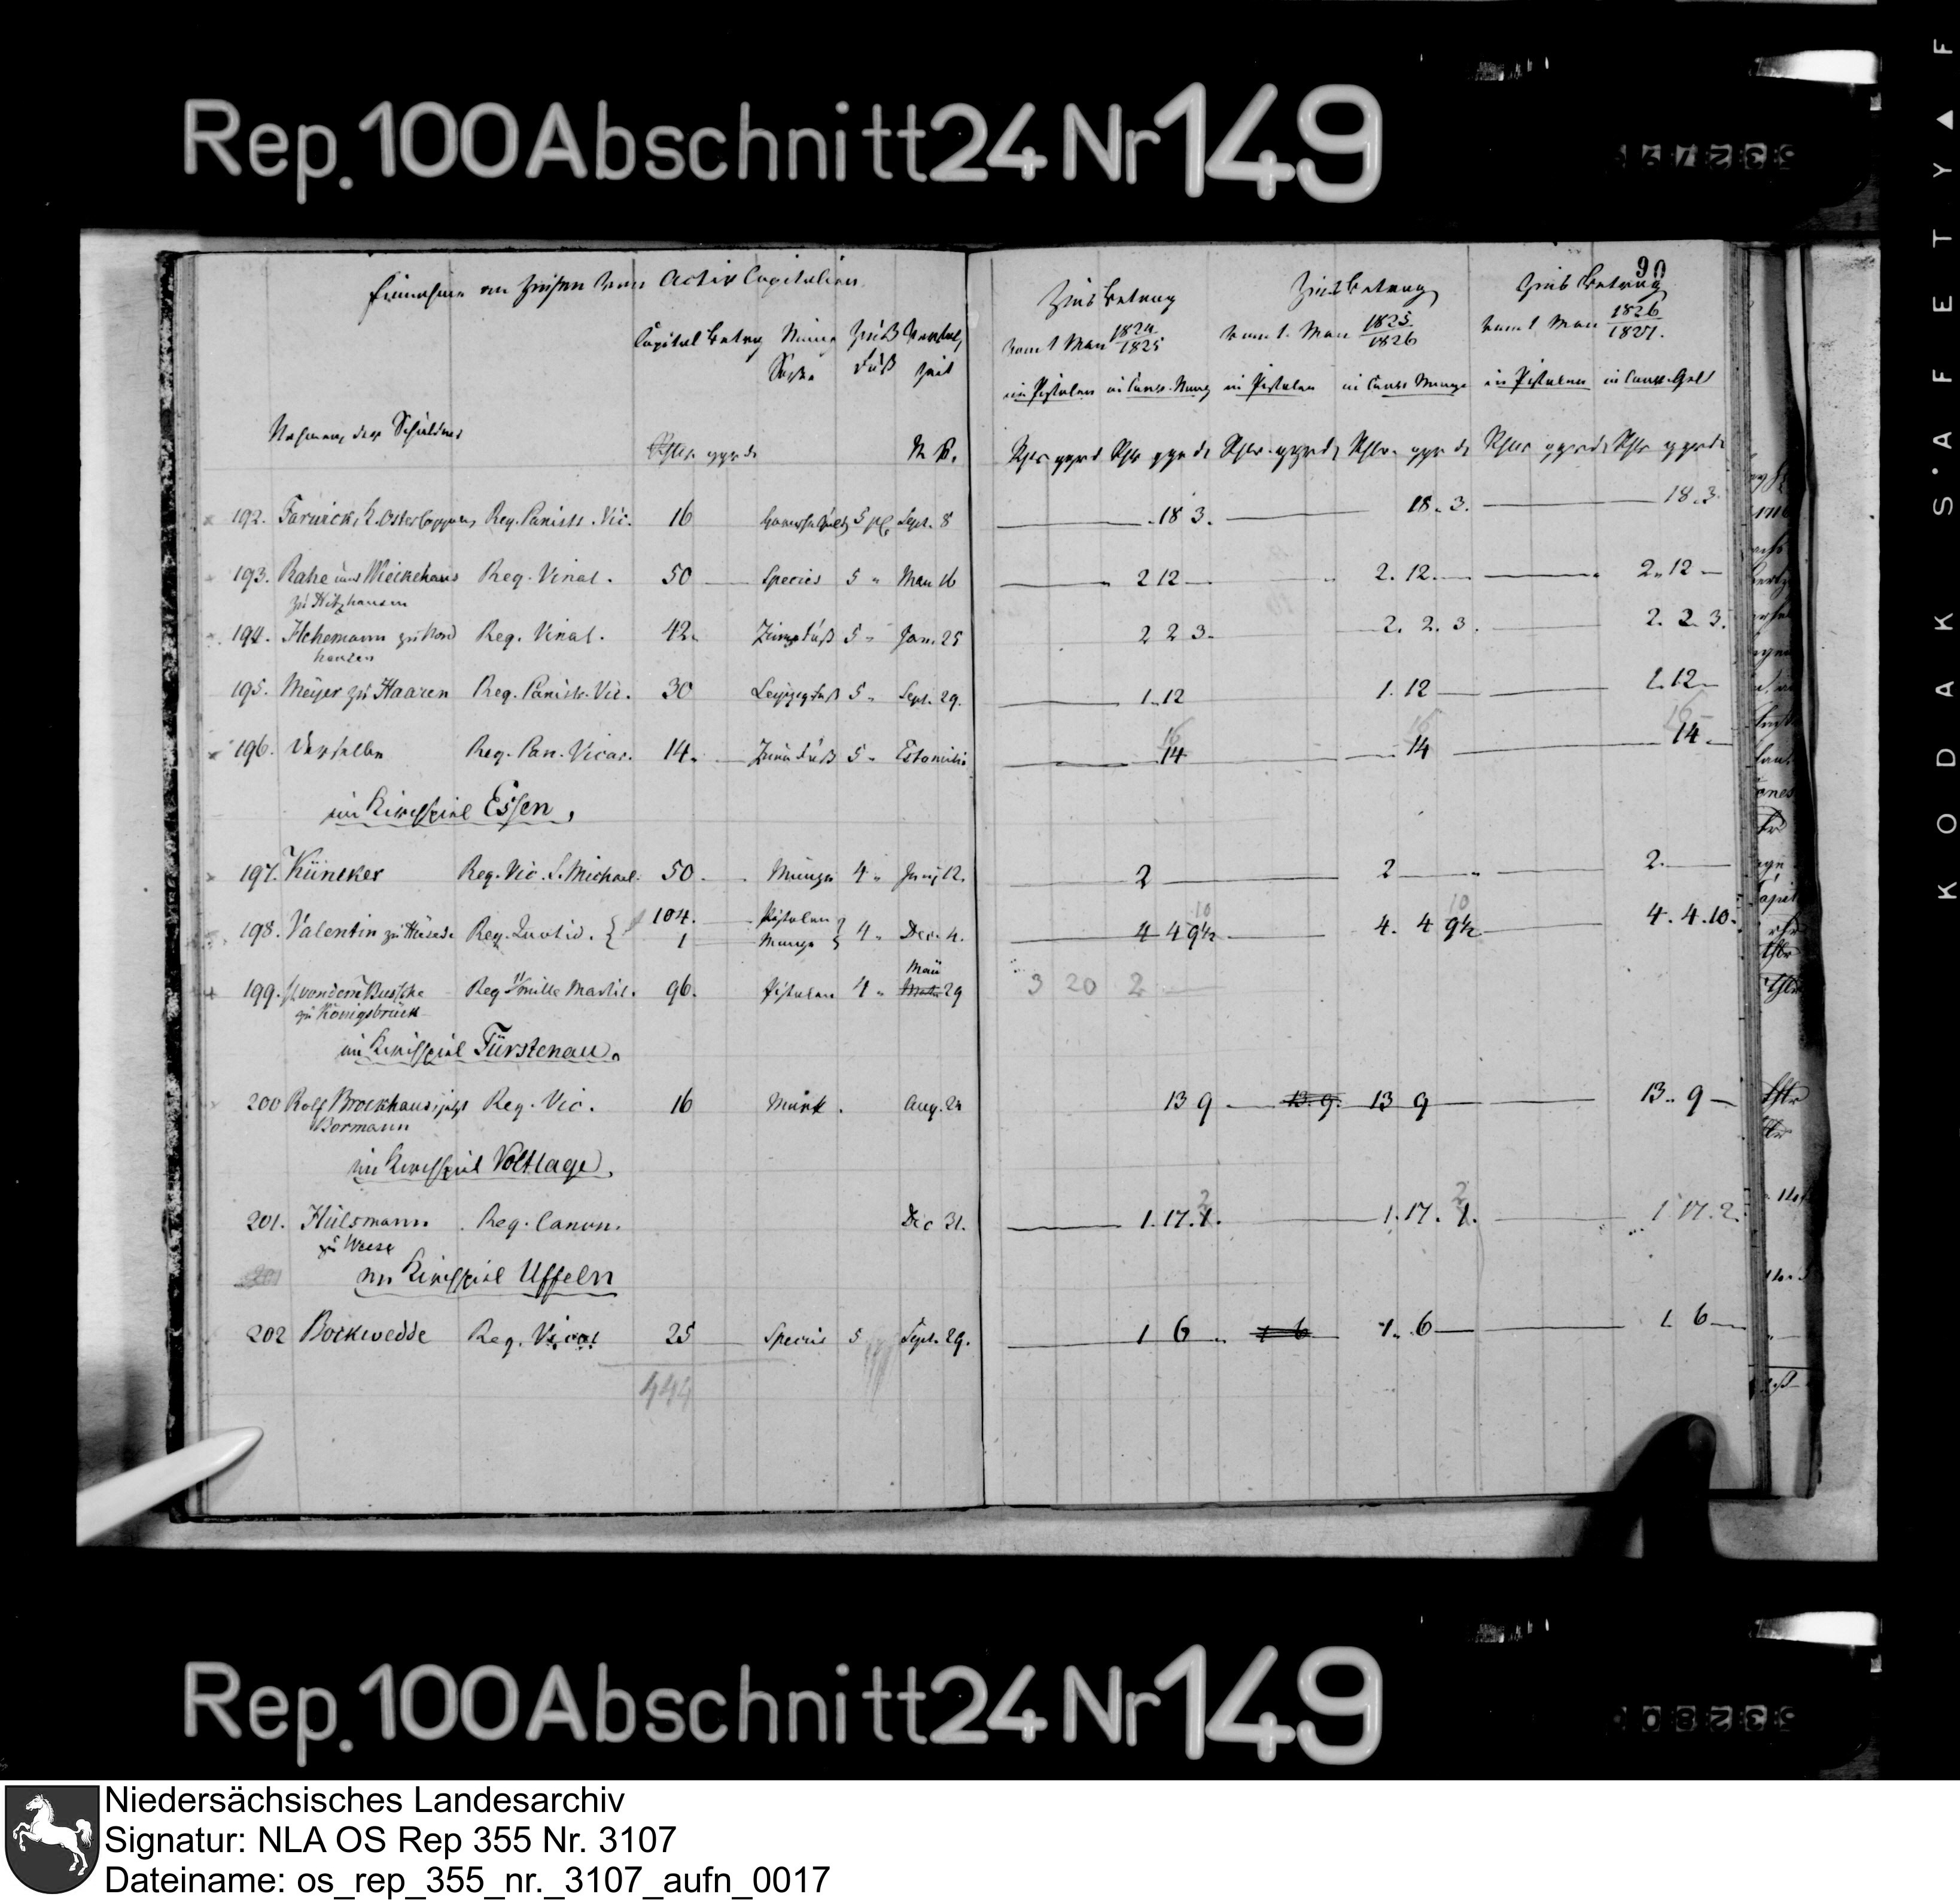 Rep. 100 Abschnitt 24 Nr 149
KODAK SAFETY F
90
Einnahme an Zinsen von Activ Capitalien
Capital Betrag Münz Sorte Zins Fuß Verfall Zeit
Nahmen der Schuldner
Zins Betrag vom 1 May 1824/1825
Zins Betrag vom 1. May 1825/1826
Zins Betrag vom 1 May 1826/1827.
in Pistolen in Conv. Münz in Pistolen in Conv. Münze in Pistolen in Conv. Geld
Rthlr ggr d Rthlr ggr d Rthlr ggr d Rthlr ggr d Rthlr ggr d Rthlr ggr d
192. Reg. Panist. Vic. 16 5 pC Sept. 8 18 3. 18. 3. 18. 3.
193. Rahe und Meickehaus Reg. Vinal. 50 Species 5 " May 16 2 12 2. 12. 2. 12
zu Hitzhausen
194. Hehemann zu Nord Reg. Vinal. 42. 5 " Jan. 25 2 2 3. 2. 2. 3. 2. 2. 3.
hausen
195. Meyer zu Haaren Reg. Panist. Vic. 30 Leipzig. Fuß 5 " Sept. 29. 1. 12 1. 12 1. 12
196. Derselbe Reg. Pan. Vicar. 14. 5 " Estomihi 16 14 16 14 16 14
im Kirchspiel Essen,
197. Küncker Reg. Vic. S. Michael. 50. Münze 4 " Junij 12. 2 2 2.
198. Valentin zu Hüsede Reg. Quotid. { 104. Pistolen } 4 " Dec. 4. 4 4 9½ 10 4. 4 9½ 10 4. 4. 10.
1 Münze
199. von dem Bussche Reg. Fömille Martil. 96. Pistolen 4 " May 29 3 20 2
zu Königsbrück
im Kirchspiel Fürstenau.
200 Rolf Brockhaus, jetzt Reg. Vic. 16 Münz. Aug. 24 13 9 13. 9. 13 9 13. 9
Bormann
im Kirchspiel Voltlage,
201. Hülsmann Reg. Canon. Dec 31. 1. 17. 1. 2 1. 17. 1. 2 1 17. 2.
zu Weese
201 im Kirchspiel Uffeln
202 Bockwedde Reg. Vical 25 Species 5 Sept. 29. 1 6 1 6 1. 6 1. 6
444
Rep. 100 Abschnitt 24 Nr 149
Niedersächsisches Landesarchiv
Signatur: NLA OS Rep 355 Nr. 3107
Dateiname: os_rep_355_nr._3107_aufn_0017